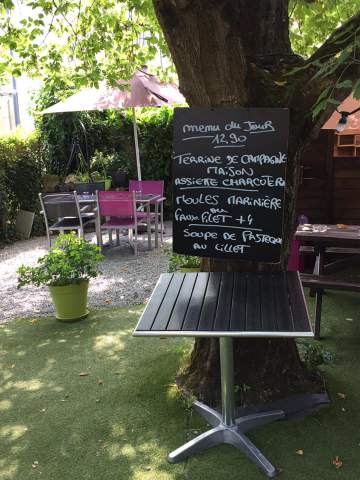 menu du Jour
12,90
TERRINE DE CAMPAGNE
MAISON
ASSIETTE CHARCUTERIE
MOULES MARINIÈRE
ou
FAUX FILET +4
SOUPE DE PASTEQUE
AU LILLET